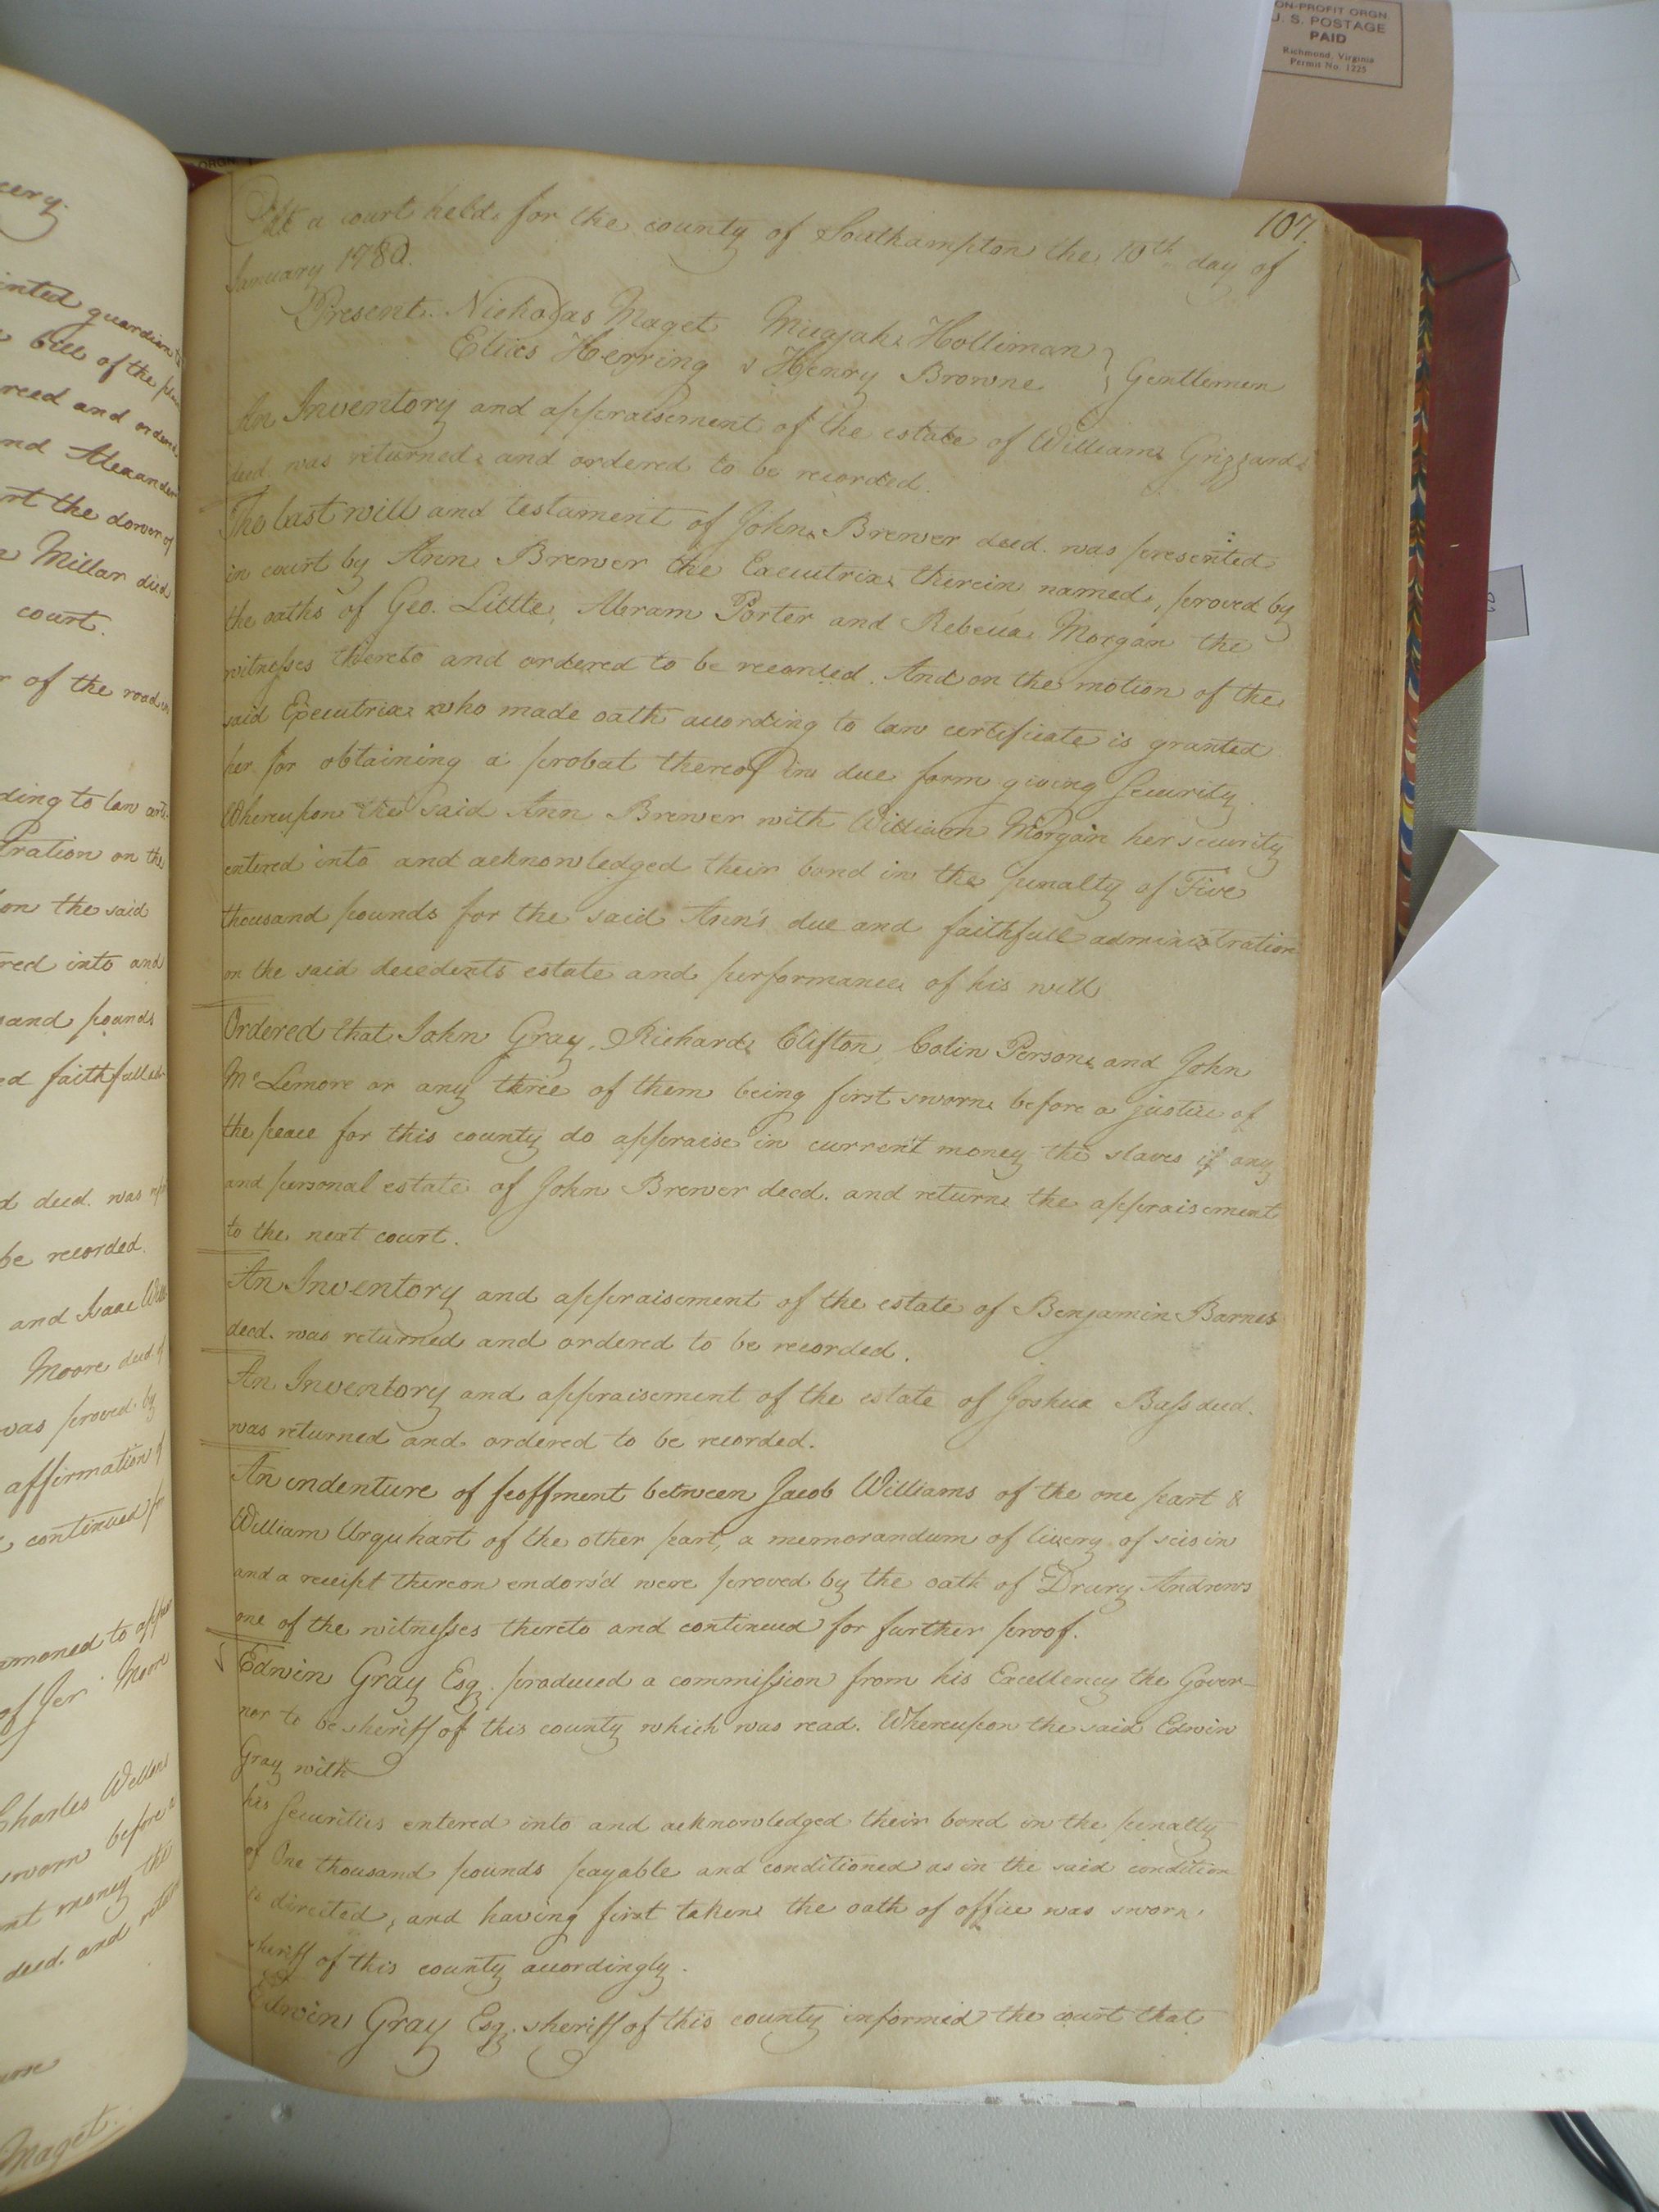 cery.
inted guardian to
bill of the
reed and ordered
nd Alexander
rt the dower of
Millar decd
court.
r of the road
ding to law
tration on the
on the said
red into and
sand pounds
ed faithfull
d decd. was
be recorded.
and Isaac
Moore decd
was proved by
affirmation of
continued
mmoned to
of Jer Moore
Charles
sworn before
ent money the
decd. and
Maget
ON-PROFIT ORGN.
U. S. POSTAGE
PAID
Richmond, Virginia
Permit No. 1225
ORGN
107.
At a court held for the county of Southampton the 10th day of
January 1780.
Present. Nicholas Maget Micajah Holliman
Elias Herring & Henry Browne } Gentlemen
An Inventory and appraisement of the estate of William Grizzard
decd. was returned and ordered to be recorded.
The last will and testament of John Brewer decd. was presented
in court by Ann Brewer the Executrix therein named, proved by
the oaths of Geo. Little, Abram Porter and Rebecca Morgan the
witnesses thereto and ordered to be recorded. And on the motion of the
said Executrix who made oath according to law certificate is granted
her for obtaining a probat thereof in due form giving security.
Whereupon the said Ann Brewer with William Morgan her security
entered into and acknowledged their bond in the penalty of Five
thousand pounds for the said Ann's due and faithfull administration
on the said decedents estate and performance of his will
Ordered that John Gray, Richard Clifton, Colin Person and John
McLemore or any three of them being first sworn before a justice of
the peace for this county do appraise in current money the slaves if any
and personal estate of John Brewer decd. and return the appraisement
to the next court.
An Inventory and appraisement of the estate of Benjamin Barnes
decd. was returned and ordered to be recorded.
An Inventory and appraisement of the estate of Joshua Bass decd.
was returned and ordered to be recorded.
An indenture of feoffment between Jacob Williams of the one part &
William Urquhart of the other part, a memorandum of livery of seisin
and a receipt thereon endors'd were proved by the oath of Drury Andrews
one of the witnesses thereto and continued for further proof.
Edwin Gray Esq. produced a commission from his Excellency the Gover-
nor to be sheriff of this county which was read. Whereupon the said Edwin
Gray with
his Securities entered into and acknowledged their bond in the penalty
of One thousand pounds payable and conditioned as in the said condition
is directed, and having first taken the oath of office was sworn
sheriff of this county accordingly.
Edwin Gray Esq. sheriff of this county informed the court that